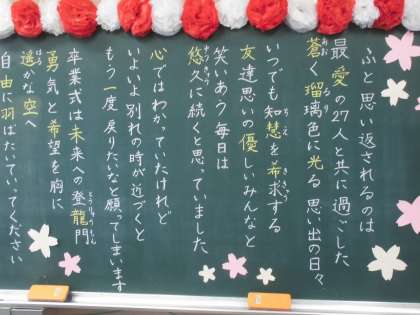 ふと思い返されるのは
最愛の27人と共に過ごした
蒼く瑠璃色に光る思い出の日々
いつでも知慧を希求する
友達思いの優しいみんなと
笑いあう毎日は
悠久に続くと思っていました
心ではわかっていたけれど
いよいよ別れの時が近づくと
もう一度戻りたいなと願ってしまいます
卒業式は未来への登龍門
勇気と希望を胸に
遥かな空へ
自由に羽ばたいていってください